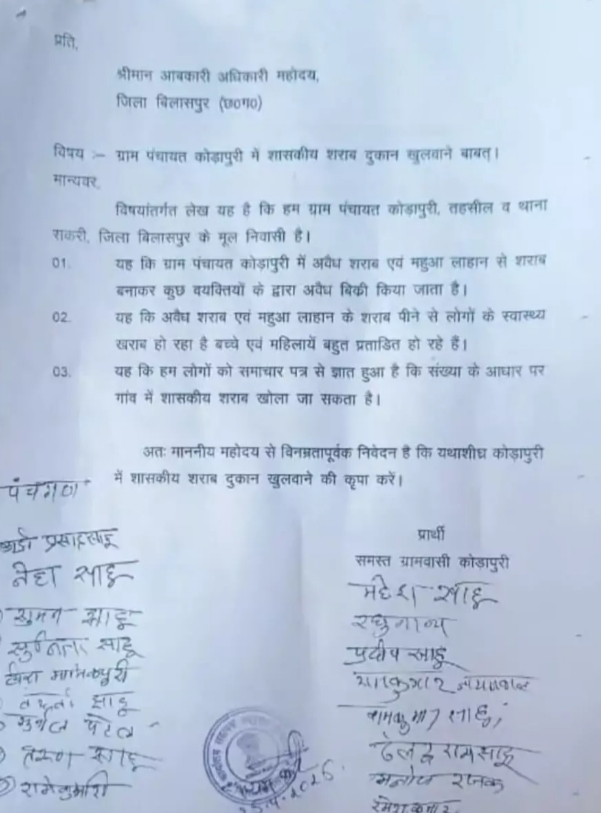 प्रति,
श्रीमान आबकारी अधिकारी महोदय,
जिला बिलासपुर (छ०ग०)
विषय :– ग्राम पंचायत कोड़ापुरी में शासकीय शराब दुकान खुलवाने बाबत्।
मान्यवर,
विषयांतर्गत लेख यह है कि हम ग्राम पंचायत कोड़ापुरी, तहसील व थाना
सकरी, जिला बिलासपुर के मूल निवासी है।
01. यह कि ग्राम पंचायत कोड़ापुरी में अवैध शराब एवं महुआ लाहान से शराब
बनाकर कुछ वयक्तियों के द्वारा अवैध बिकी किया जाता है।
02. यह कि अवैध शराब एवं महुआ लाहान के शराब पीने से लोगों के स्वास्थ्य
खराब हो रहा है बच्चे एवं महिलायें बहुत प्रताडित हो रहे हैं।
03. यह कि हम लोगों को समाचार पत्र से ज्ञात हुआ है कि संख्या के आधार पर
गांव में शासकीय शराब खोला जा सकता है।
अतः माननीय महोदय से विनम्रतापूर्वक निवेदन है कि यथाशीघ्र कोड़ापुरी
में शासकीय शराब दुकान खुलवाने की कृपा करें।
पंचगण
प्रसाद साहू
नेहा साहू
सुमन साहू
सुनिता साहू
मानिकपुरी
साहू
पटेल
तरुण साहू
रामकुमारी
प्रार्थी
समस्त ग्रामवासी कोड़ापुरी
महेश साहू
रघुनाथ
प्रदीप साहू
जायसवाल
रामकुमार साहू
साहू
मनोज रजक
रमेश कुमार